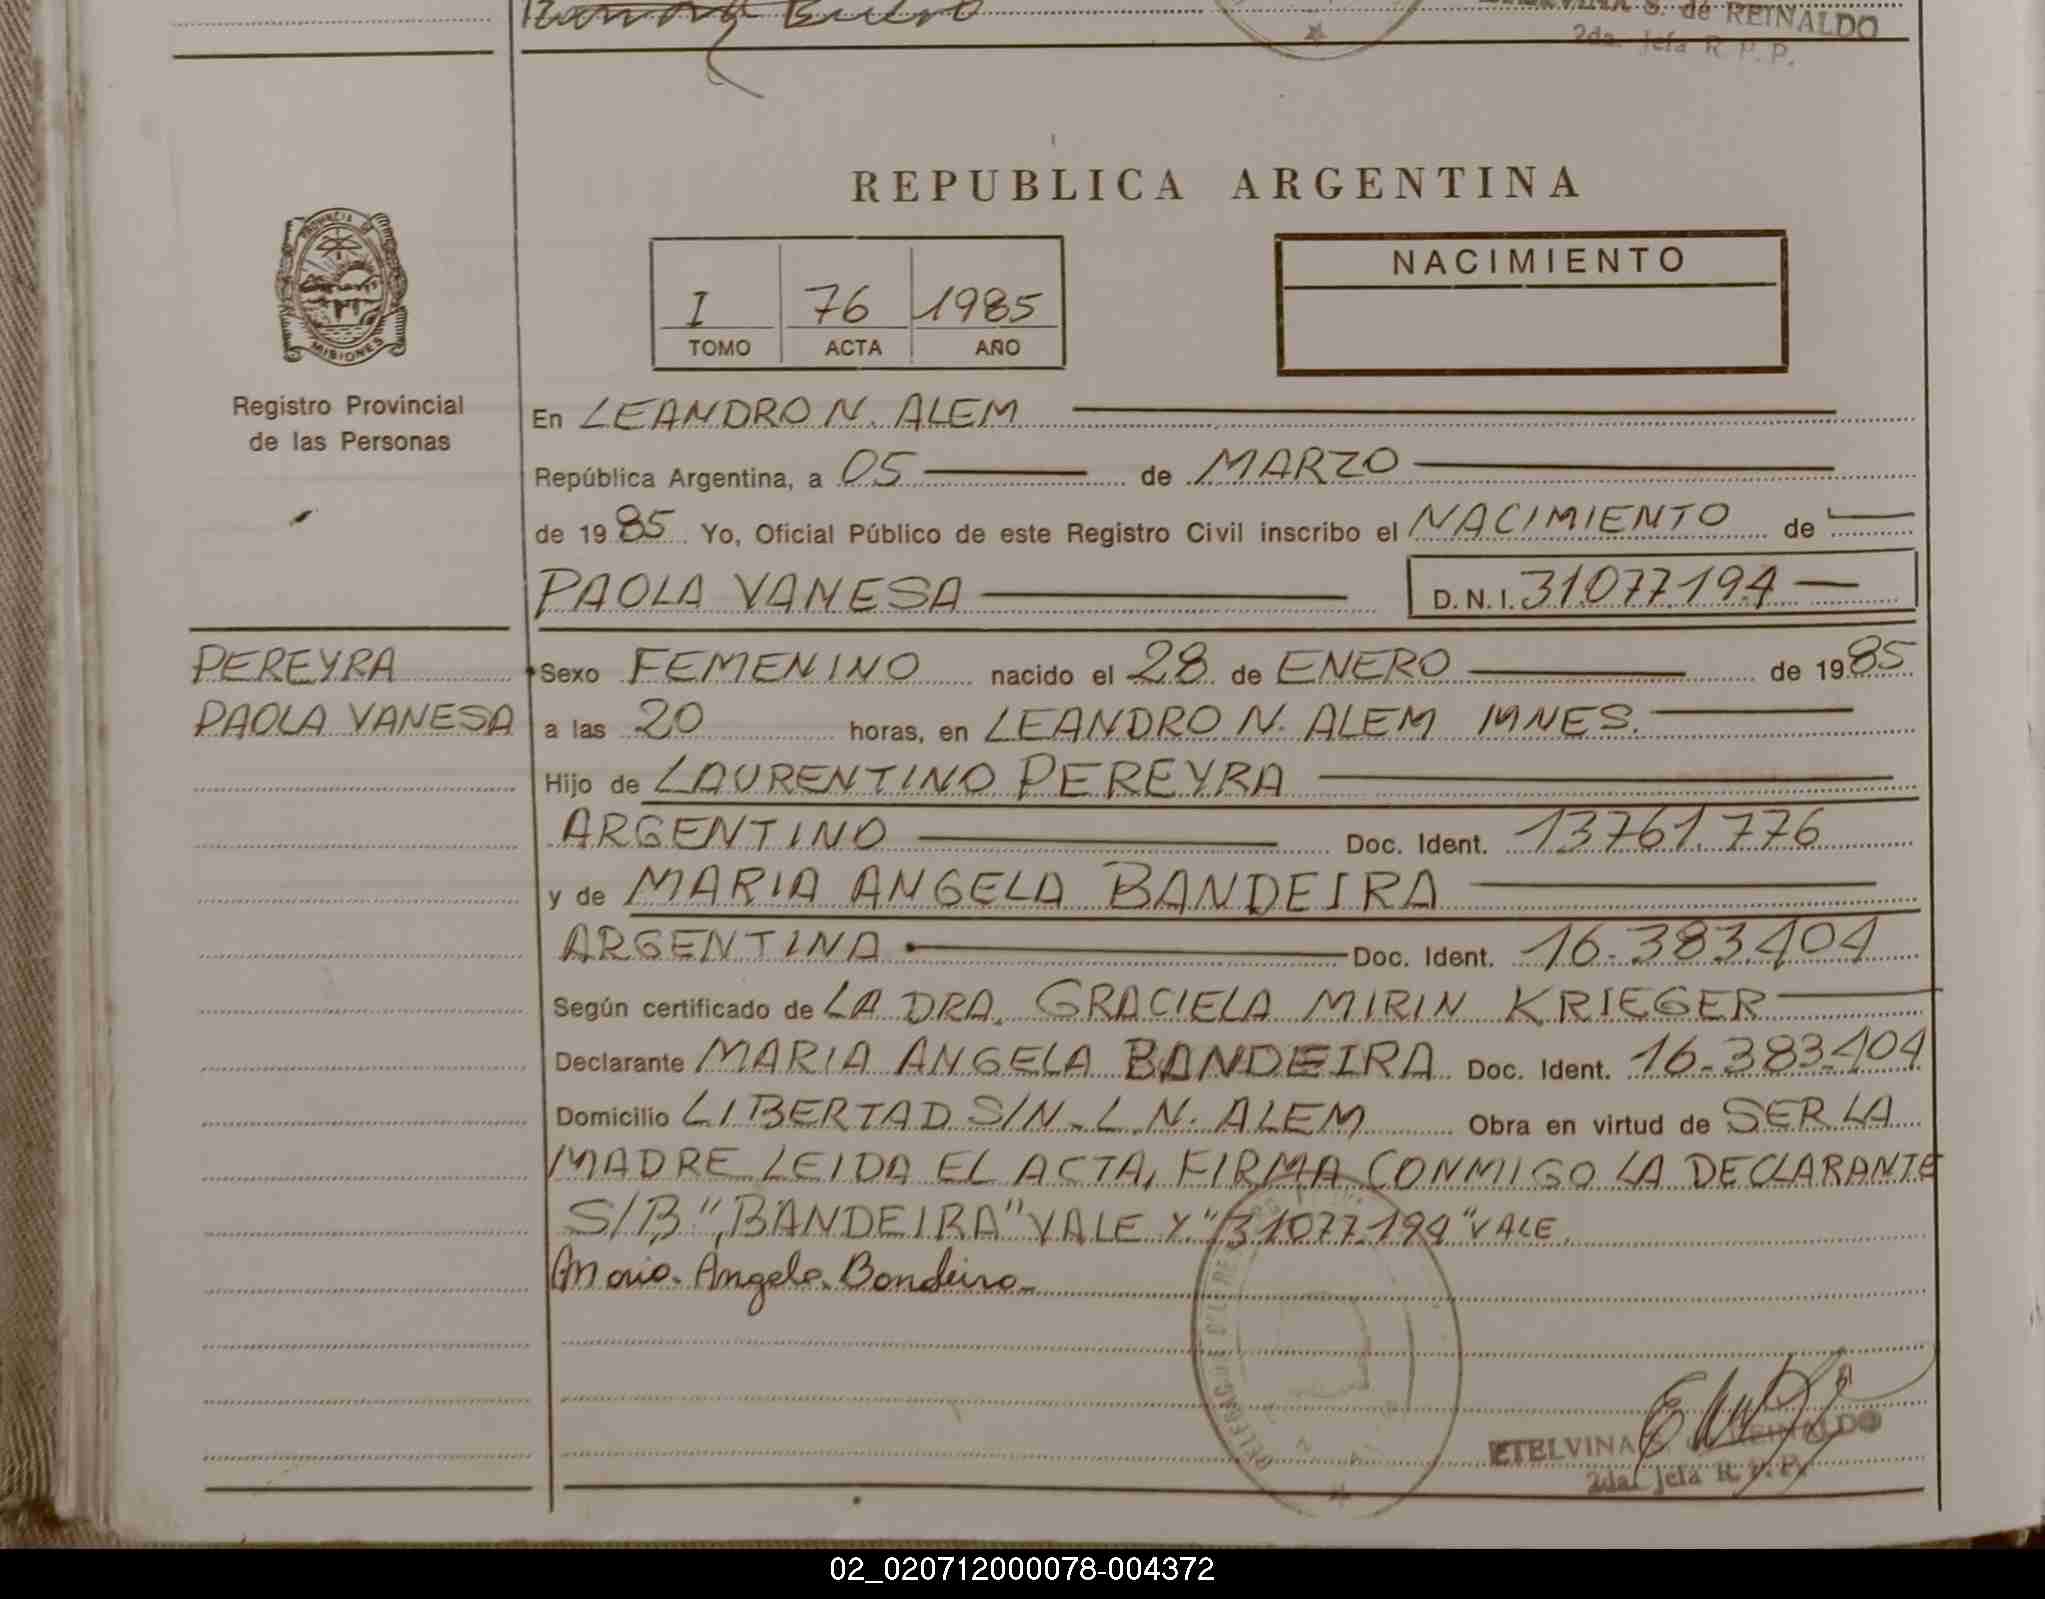 S. de REINALDO
2da. Jefa R. P. P.
REPUBLICA ARGENTINA
PROVINCIA DE
MISIONES
Registro Provincial
de las Personas
I 76 1985
TOMO ACTA AÑO
NACIMIENTO
En LEANDRO N. ALEM
República Argentina, a 05 de MARZO
de 1985 Yo, Oficial Público de este Registro Civil inscribo el NACIMIENTO de
PAOLA VANESA D.N.I. 31.077.194
PEREYRA
PAOLA VANESA
Sexo FEMENINO nacido el 28 de ENERO de 1985
a las 20 horas, en LEANDRO N. ALEM MNES.
Hijo de LAURENTINO PEREYRA
ARGENTINO Doc. Ident. 13761.776
y de MARIA ANGELA BANDEIRA
ARGENTINA Doc. Ident. 16.383.404
Según certificado de LA DRA. GRACIELA MIRIN KRIEGER
Declarante MARIA ANGELA BANDEIRA Doc. Ident. 16.383.404
Domicilio LIBERTAD S/N. L.N. ALEM Obra en virtud de SER LA
MADRE LEIDA EL ACTA, FIRMA CONMIGO LA DECLARANTE
S/B "BANDEIRA" VALE Y "31077.194" VALE.
Maria Angela Bandeira
ETELVINA S. de REINALDO
2da. Jefa R. P. P.
02_020712000078-004372